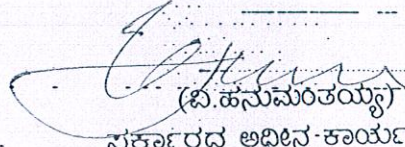 (ವಿ.ಹನುಮಂತಯ್ಯ)
ಸರ್ಕಾರದ ಅಧೀನ ಕಾರ್ಯ